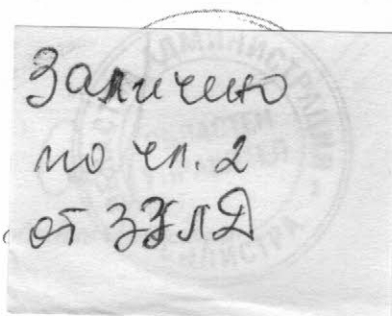 Заличено
по чл. 2
от ЗЗЛД